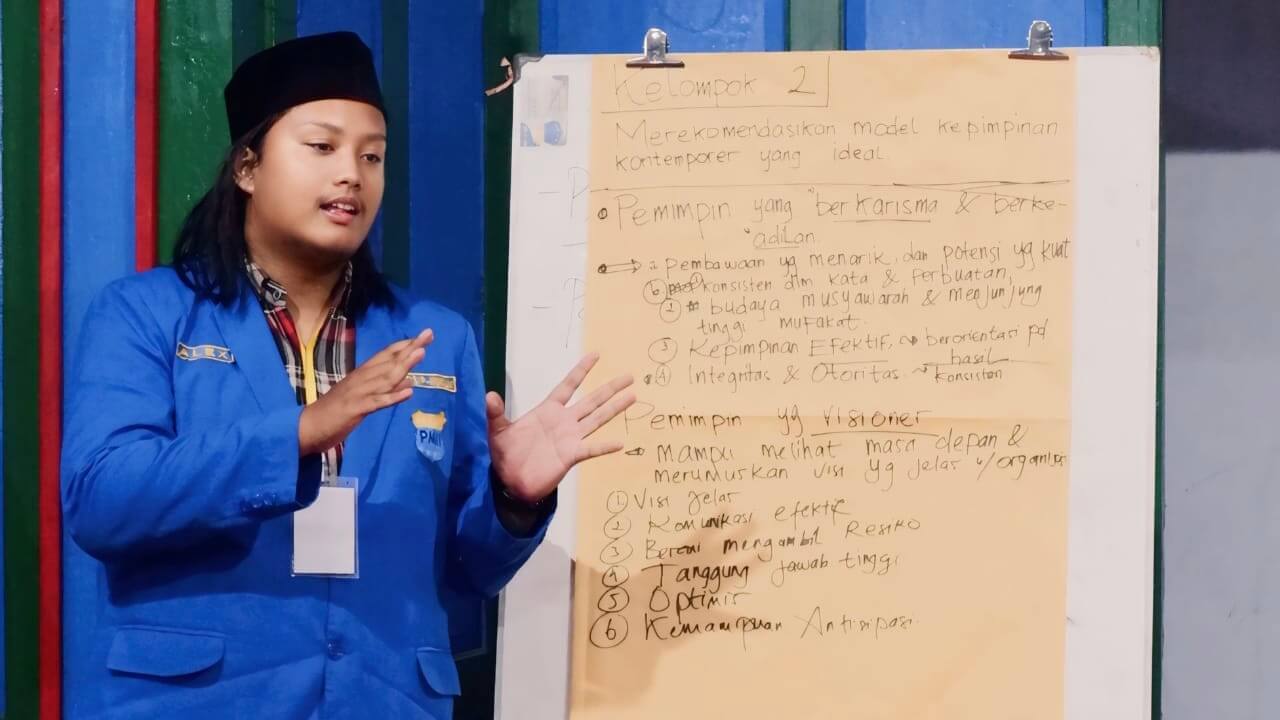 Kelompok 2
Merekomendasikan model kepimpinan
kontemporer yang ideal.
Pemimpin yang "berkarisma & berke-
"adilan.
: pembawaan yg menarik, dan potensi yg kuat
konsisten dlm kata & perbuatan,
② budaya musyawarah & menjunjung
tinggi mufakat.
③ Kepimpinan Efektif, ~ berorientasi pd
hasil
④ Integritas & Otoritas ~ konsisten
Pemimpin yg visioner
mampu melihat masa depan &
merumuskan visi yg jelas u/organisasi
① Visi jelas
② Komunikasi efektif
③ Berani mengambil Resiko
④ Tanggung jawab tinggi
⑤ Optimis
⑥ Kemampuan Antisipasi.
ALEX